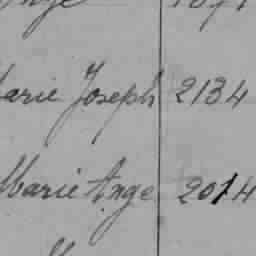 arie Joseph 2134
Marie Ange 2014